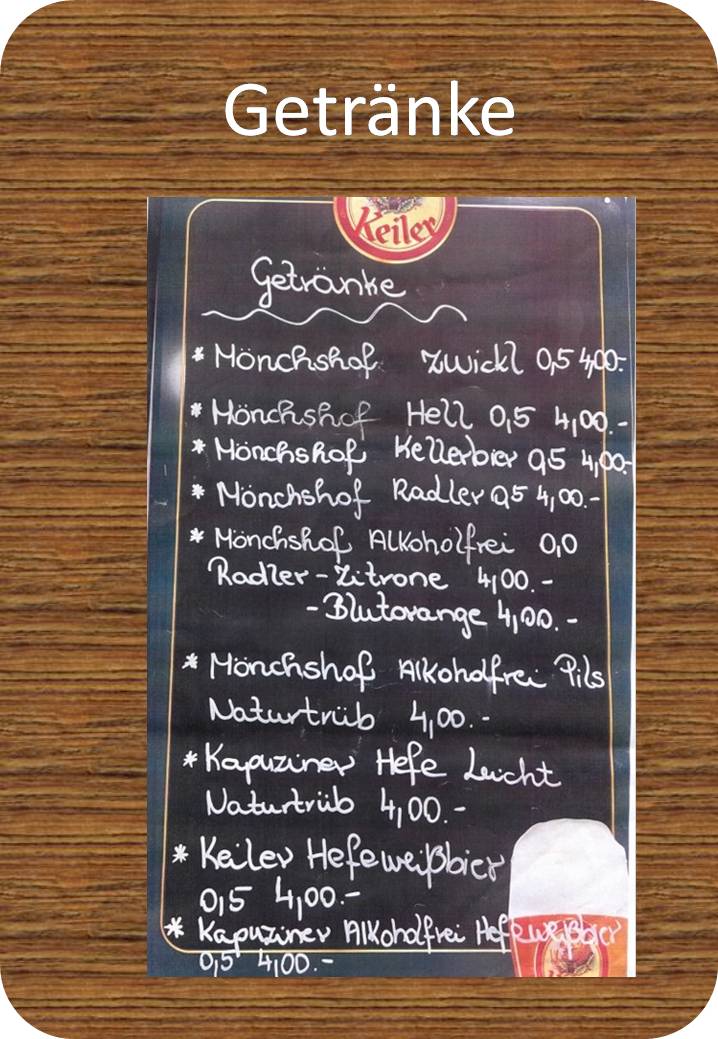 Getränke
Keiler
Getränke
* Mönchshof Zwickl 0,5 4,00.-
* Mönchshof Hell 0,5 4,00.-
* Mönchshof Kellerbier 0,5 4,00.-
* Mönchshof Radler 0,5 4,00.-
* Mönchshof Alkoholfrei 0,0
Radler - Zitrone 4,00.-
- Blutorange 4,00.-
* Mönchshof Alkoholfrei Pils
Naturtrüb 4,00.-
* Kapuziner Hefe Leicht
Naturtrüb 4,00.-
* Keiler Hefeweißbier
0,5 4,00.-
* Kapuziner Alkoholfrei Hefeweißbier
0,5 4,00.-